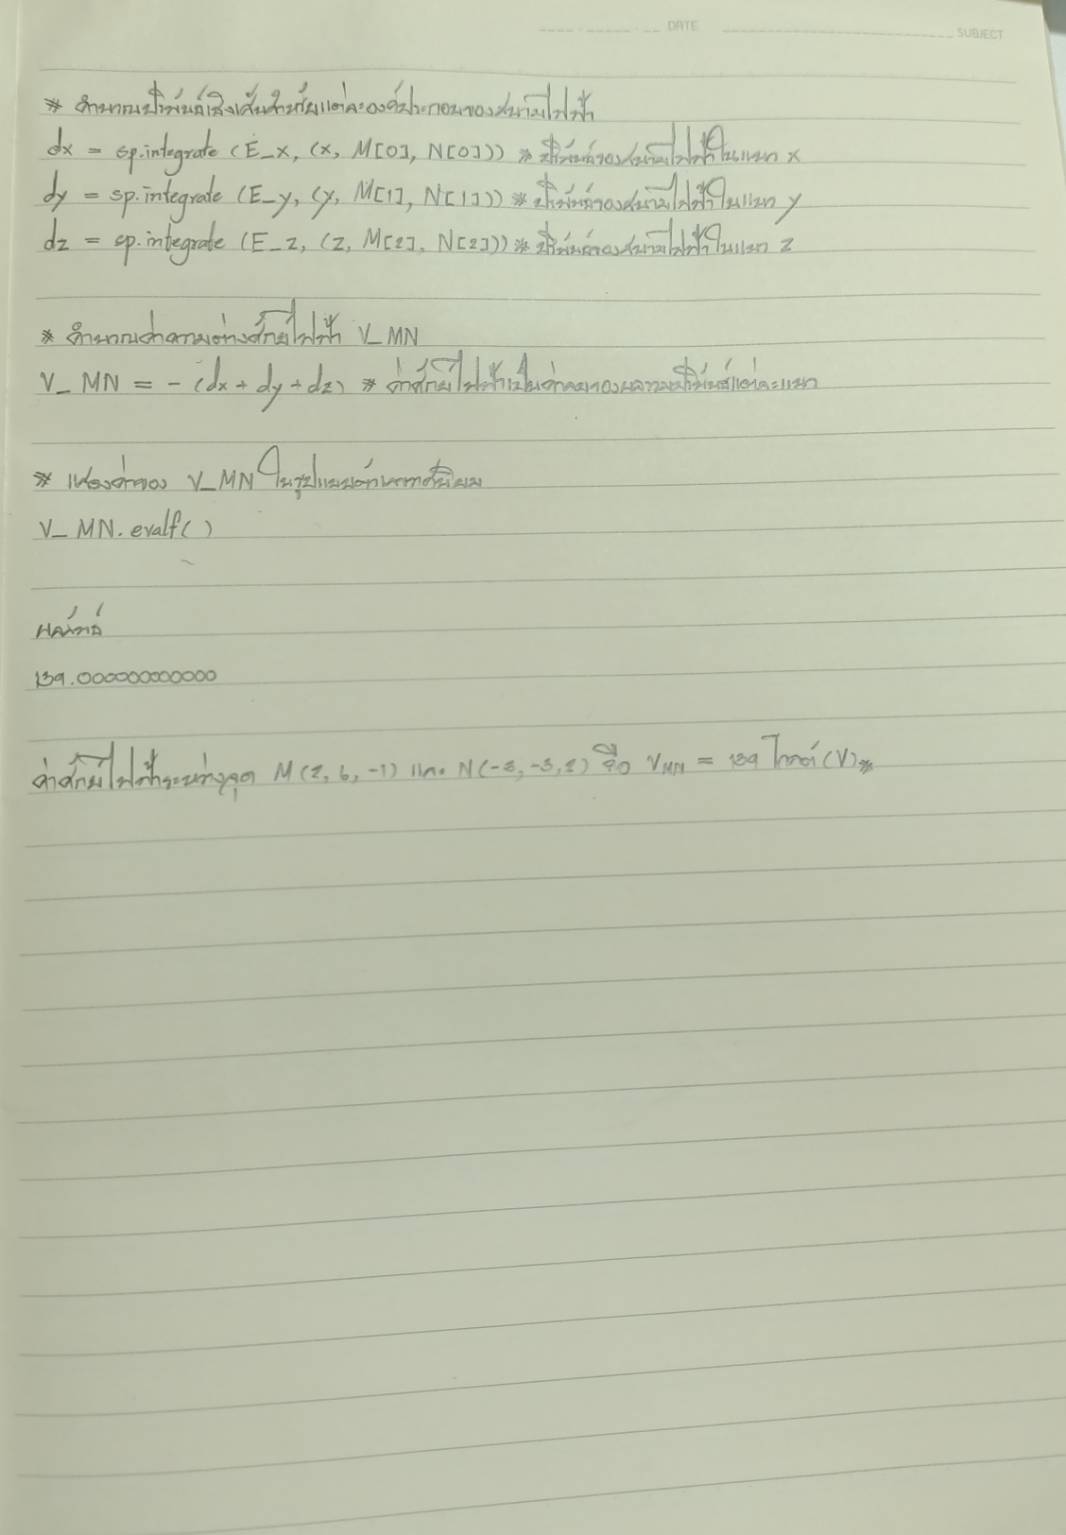 DATE SUBJECT
* คำนวณปริพันธ์เชิงเส้นสำหรับแต่ละองค์ประกอบของสนามไฟฟ้า
dx = sp.integrate (E_x, (x, M[0], N[0])) * ปริพันธ์ของสนามไฟฟ้าในแกน x
dy = sp.integrate (E_y, (y, M[1], N[1])) * ปริพันธ์ของสนามไฟฟ้าในแกน y
dz = sp.integrate (E_z, (z, M[2], N[2])) * ปริพันธ์ของสนามไฟฟ้าในแกน z
* คำนวณค่าความต่างศักย์ไฟฟ้า V_MN
V_MN = - (dx + dy + dz) * ค่าศักย์ไฟฟ้าเป็นค่าลบของผลรวมปริพันธ์แต่ละแกน
* แสดงค่าของ V_MN ในรูปแบบค่าทศนิยม
V_MN. evalf( )
ผลลัพธ์
139.000000000000
ค่าศักย์ไฟฟ้าระหว่างจุด M (2, 6, -1) และ N (-3, -3, 2) คือ V_MN = 139 โวลต์ (V)